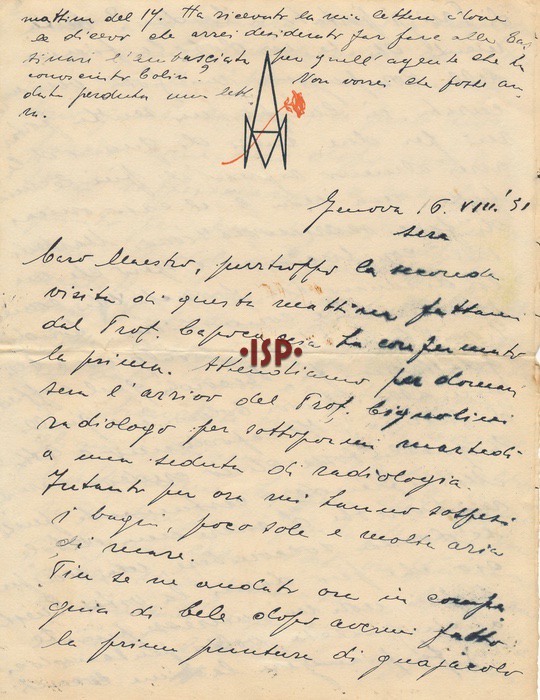 mattina del 14. Ha ricevuto la mia lettera dove
le dicevo che avrei desiderato far fare alla Bat
tinari l'embasciata per quell'agente che ha
conosciuto Colin? Non vorrei che fosse an
data perduta una lett.
ra.
Genova 16. VIII.' 31
sera
Caro Maestro, purtroppo la seconda
visita di questa mattina fattami
dal Prof. Capoca ha confermato
la prima. Attendiamo per domani
sera l'arrivo del Prof. Cignolini
radiologo per sottopormi martedì
a una seduta di radiologia.
Intanto per ora mi hanno sospesi
i bagni, poco sole e molta aria
di mare.
se ne andata ora in compa
gnia di Lele dopo avermi fatto
la prima puntura di guajacolo
·ISP·